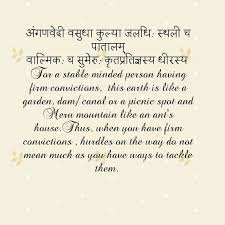 अंगणवेदी वसुधा कुल्या जलधिः स्थली च
पातालम्
वाल्मिकः च सुमेरुः कृतप्रतिज्ञस्य धीरस्य
For a stable minded person having
firm convictions, this earth is like a
garden, dam/ canal or a picnic spot and
Meru mountain like an ant's
house. Thus, when you have firm
convictions , hurdles on the way do not
mean much as you have ways to tackle
them.